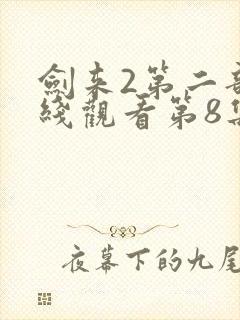 劍来2第二部
綫觀看第8集
夜幕下的九尾